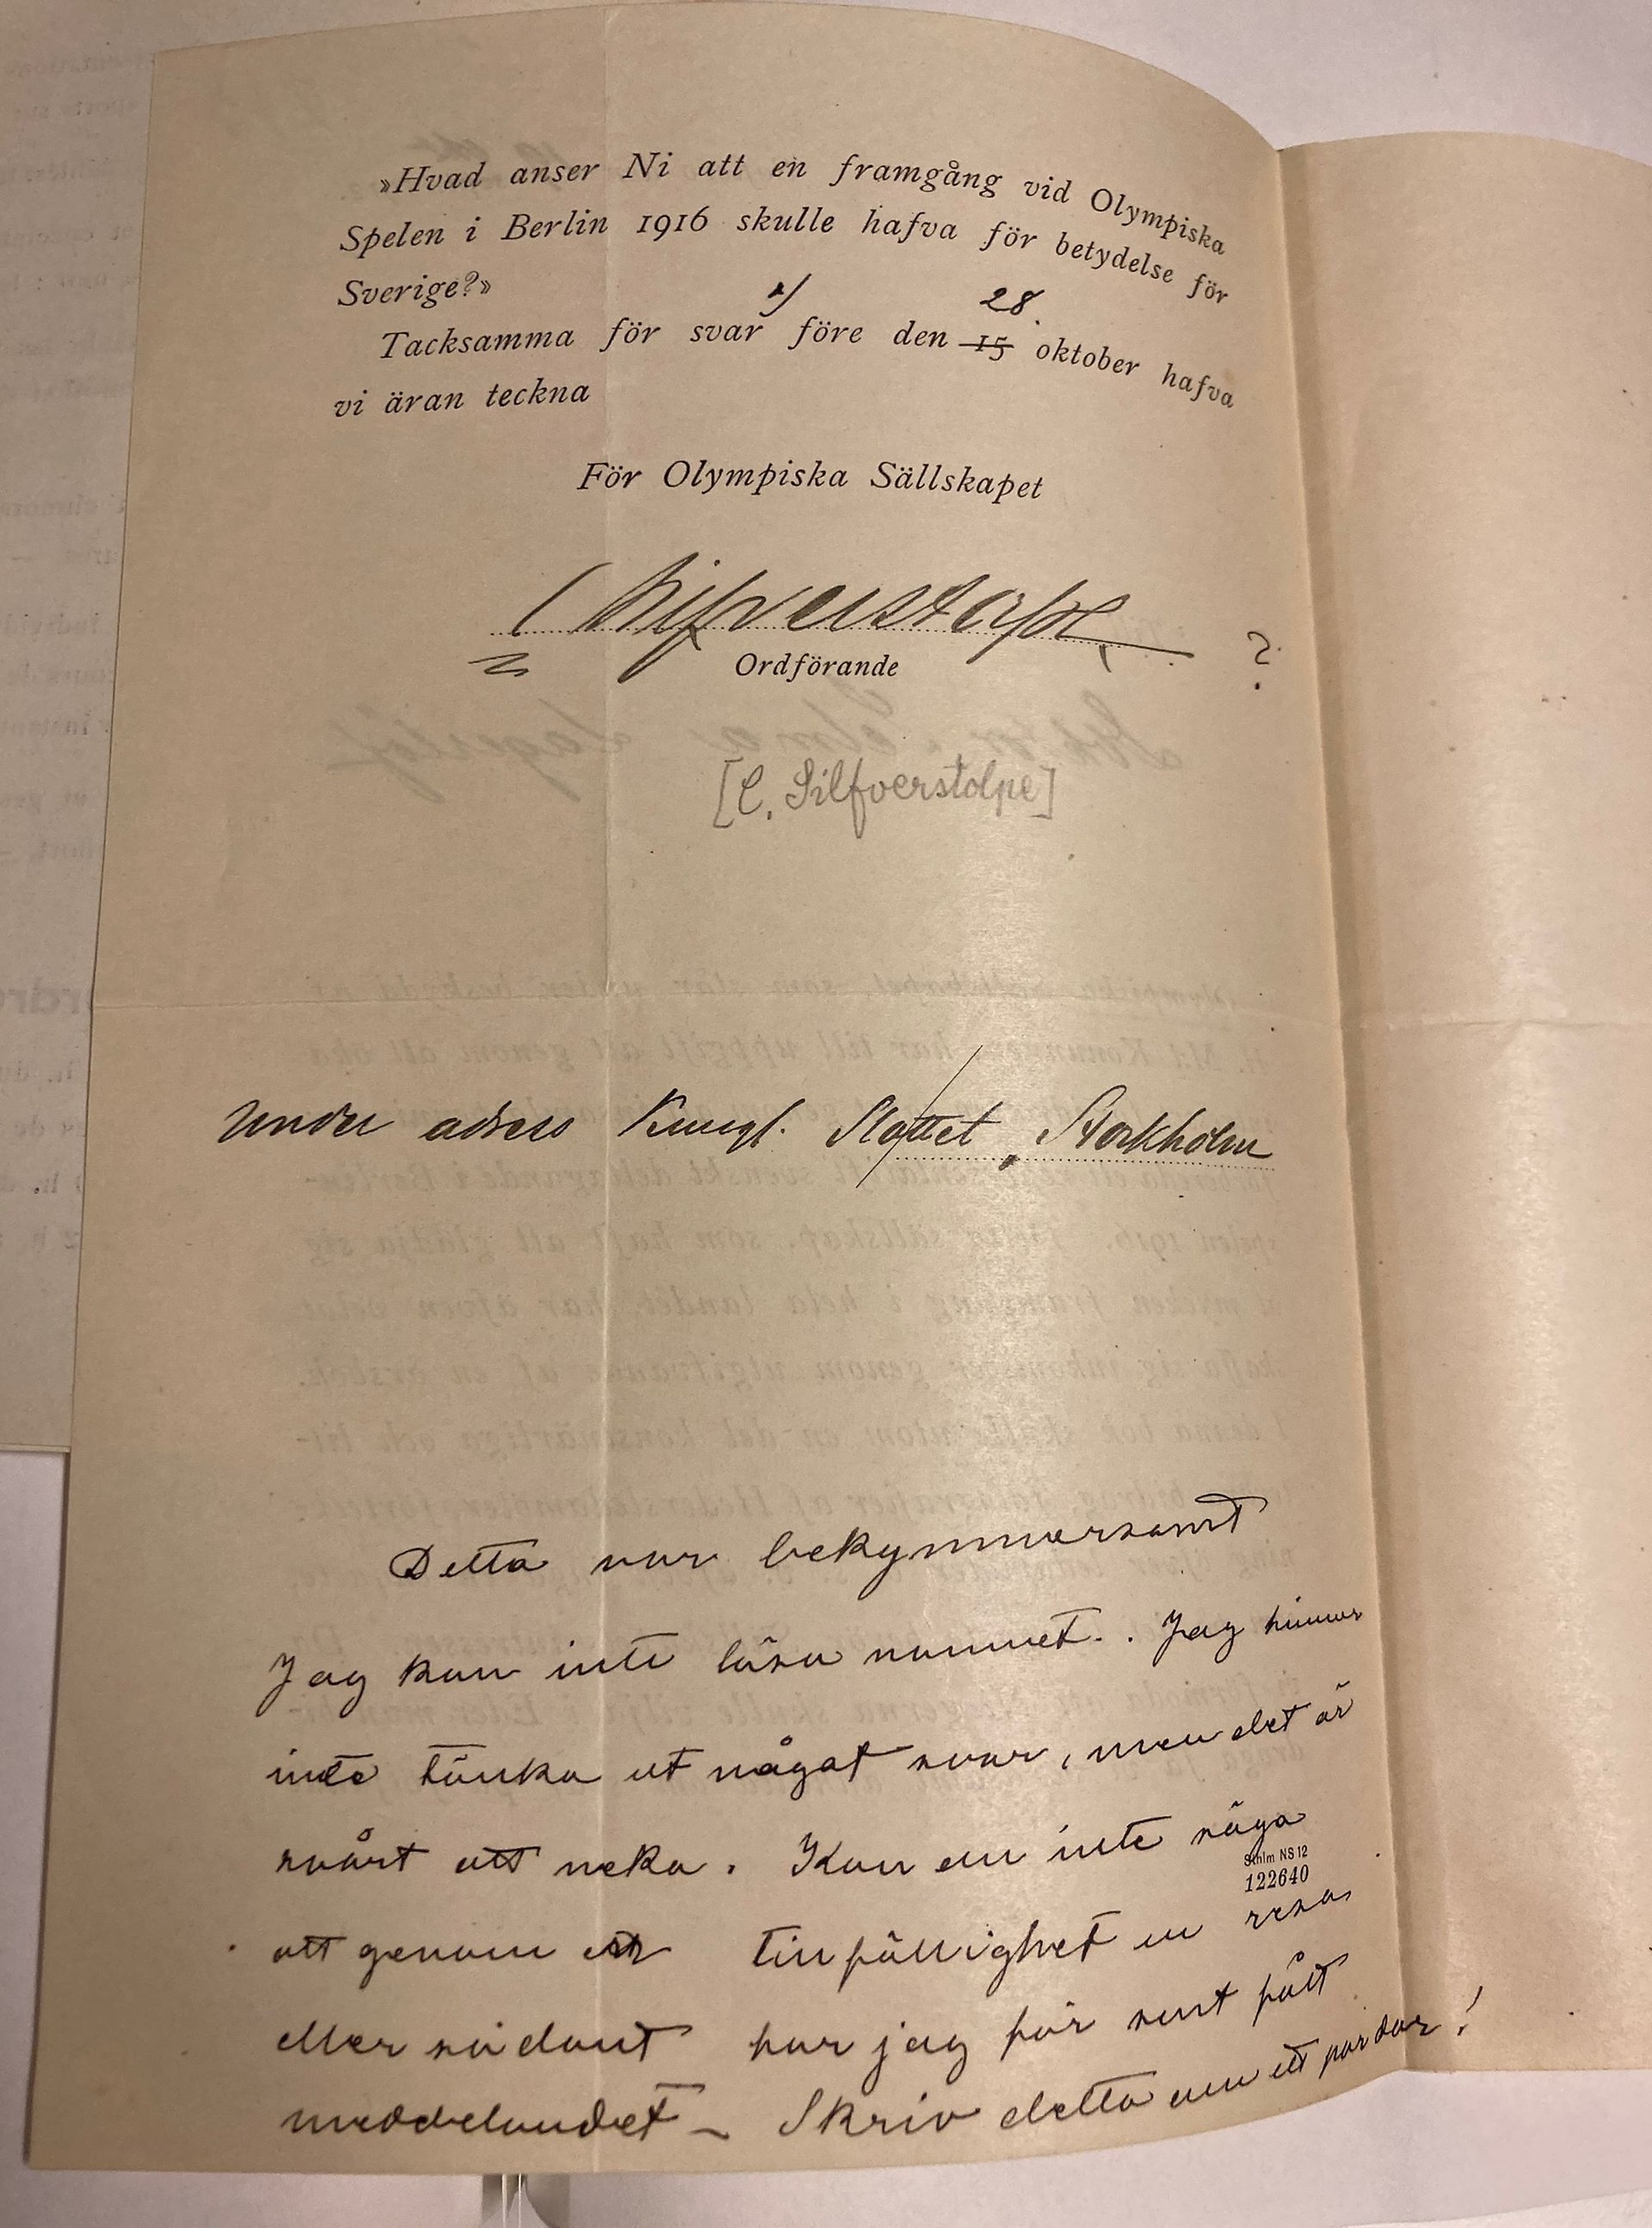 »Hvad anser Ni att en framgång vid Olympiska
Spelen i Berlin 1916 skulle hafva för betydelse för
Sverige?»
x/ 28.
Tacksamma för svar före den 15 oktober hafva
vi äran teckna
För Olympiska Sällskapet
C Silfverstolpe
Ordförande
?
[C. Silfverstolpe]
under adress Kungl. Slottet, Stockholm
Detta var bekymmersamt
Jag kan inte läsa namnet. . Jag hinner
inte tänka ut något svar, men det är
svårt att neka. Kan en inte säga
Sthlm NS 12
122640
att genom en tillfällighet en resa
eller sådant har jag för sent fått
meddelandet – Skriv detta om ett par dar!